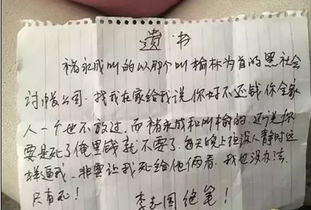 遗书
褚永成叫的以那个叫榆林为首的黑社会
讨帐公司,找我在家给我说你好不还钱你全家
人一个也不放过,而褚永成和叫榆的还说你
要是死了俺里钱就不要了。每天晚上拉没人静时这
样逼我。非要让我死给他俩看。我也没办法
只有死!
李玉国绝笔!